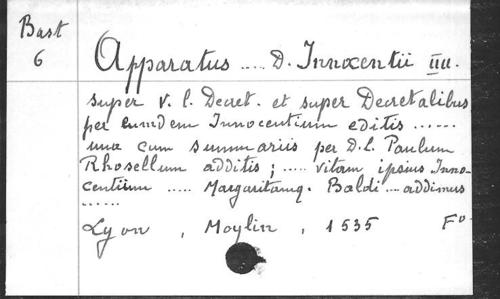 Bast
6
Apparatus ..... D. Innocentii IIII.
super V. l. Decret. et super Decretalibus
per eumdem Innocentium editis ......
una cum summariis per D. L. Paulum
Rhosellum additis ; ..... vitam ipsius Inno-
centium ..... Margaritamq. Baldi ... addimus
......
Lyon , Moylin , 1535 Fº